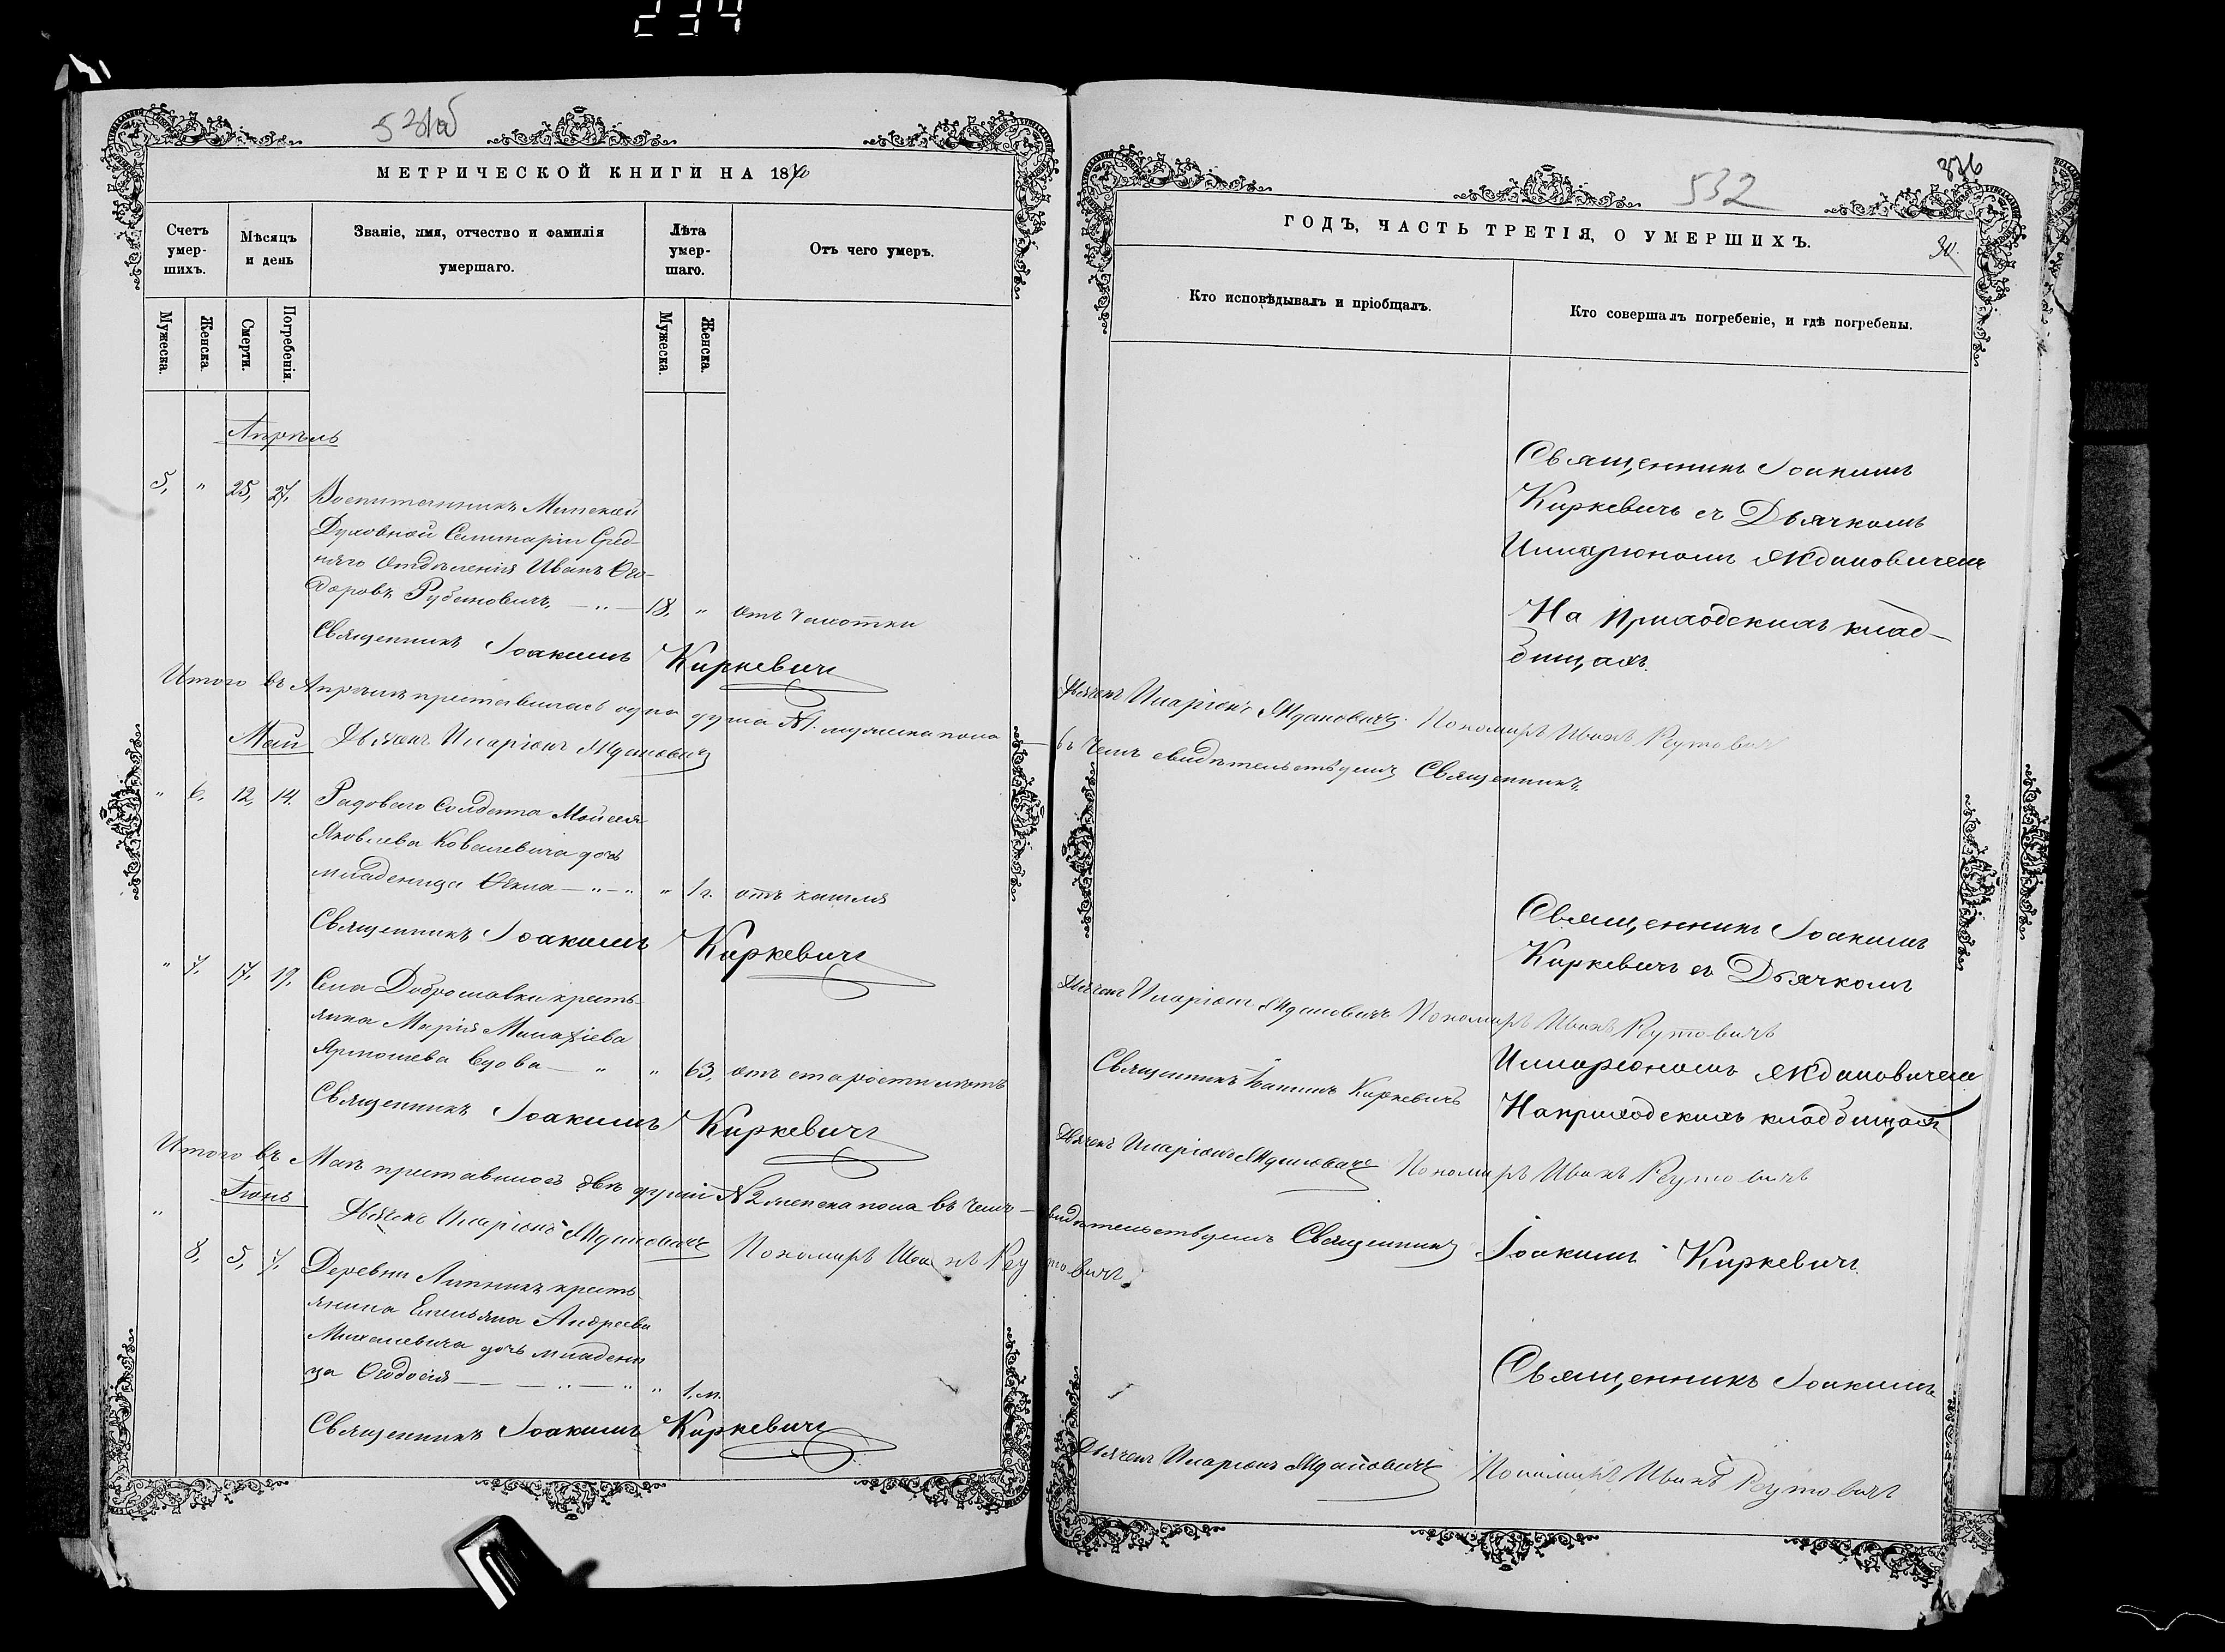 234
531об
МЕТРИЧЕСКОЙ КНИГИ НА 18
Счетъ умер-шихъ.
Мѣсяцъ и день
Званіе, имя, отчество и фамилія умершаго.
Лѣта умер-шаго.
Отъ чего умеръ.
Мужеска.
Женска.
Смерти.
Погребенія.
Мужеска.
Женска.
Апрѣль
5, " 25, 27. Воспитанникъ Минской
Духовной Семинаріи Сред-
няго Отдѣленія Иванъ Ѳео-
доровъ Рубановичъ, — " — 18, " отъ чахотки
Священникъ Іоакимъ Киркевичъ
Итого въ Апрѣлѣ преставилась одна душа №1. мужска пола
Май Дьячекъ Иларіонъ Ждановичъ
" 6, 12, 14. Радоваго Солдата Мойсея
Яковлева Ковалевича дочь
младеница Ѳекла — " — " " 1 г. отъ кашля
Священникъ Іоакимъ Киркевичъ
" 7, 17, 19, Села Доброславки кресть-
янка Марія
Ярмошева вдова — " " 63, отъ старости лѣтъ
Священникъ Іоакимъ Киркевичъ
Итого въ Маѣ преставилось двѣ души №2 женска пола въ чемъ —
Іюнь Дьячекъ Иларіонъ Ждановичъ Пономарь Иванъ Реу
" 8, 5, 7. Деревни крестъ-
янина Емельяна Андреева
Михалевича дочь младени
ца Ѳеодосія — — " — " " 1. м.
Священникъ Іоакимъ Киркевичъ
532
30.
ГОДЪ, ЧАСТЬ ТРЕТІЯ, О УМЕРШИХЪ.
Кто исповѣдывалъ и пріобщалъ.
Кто совершалъ погребеніе, и гдѣ погребены.
Священникъ Іоакимъ
Киркевичъ съ Дьячкомъ
Илларіономъ Ждановичемъ
На приходскихъ клад-
бищахъ.
Дьячекъ Иларіонъ Ждановичъ. Пономарь Иванъ Реутовичъ
въ чемъ свидѣтельствуемъ Священникъ
Священникъ Іоакимъ
Киркевичъ съ Дьячкомъ
Дьячекъ Иларіонъ Ждановичъ Пономарь Иванъ Реутовичъ
Илларіономъ Ждановичемъ
Священникъ Іоакимъ Киркевичъ На приходскихъ кладбищахъ
Дьячекъ Иларіонъ Ждановичъ Пономарь Иванъ Реутовичъ
видѣтельствуемъ Священникъ Іоакимъ Киркевичъ
товичъ
Священникъ Іоакимъ
Дьячекъ Иларіонъ Ждановичъ Пономарь Иванъ Реутовичъ